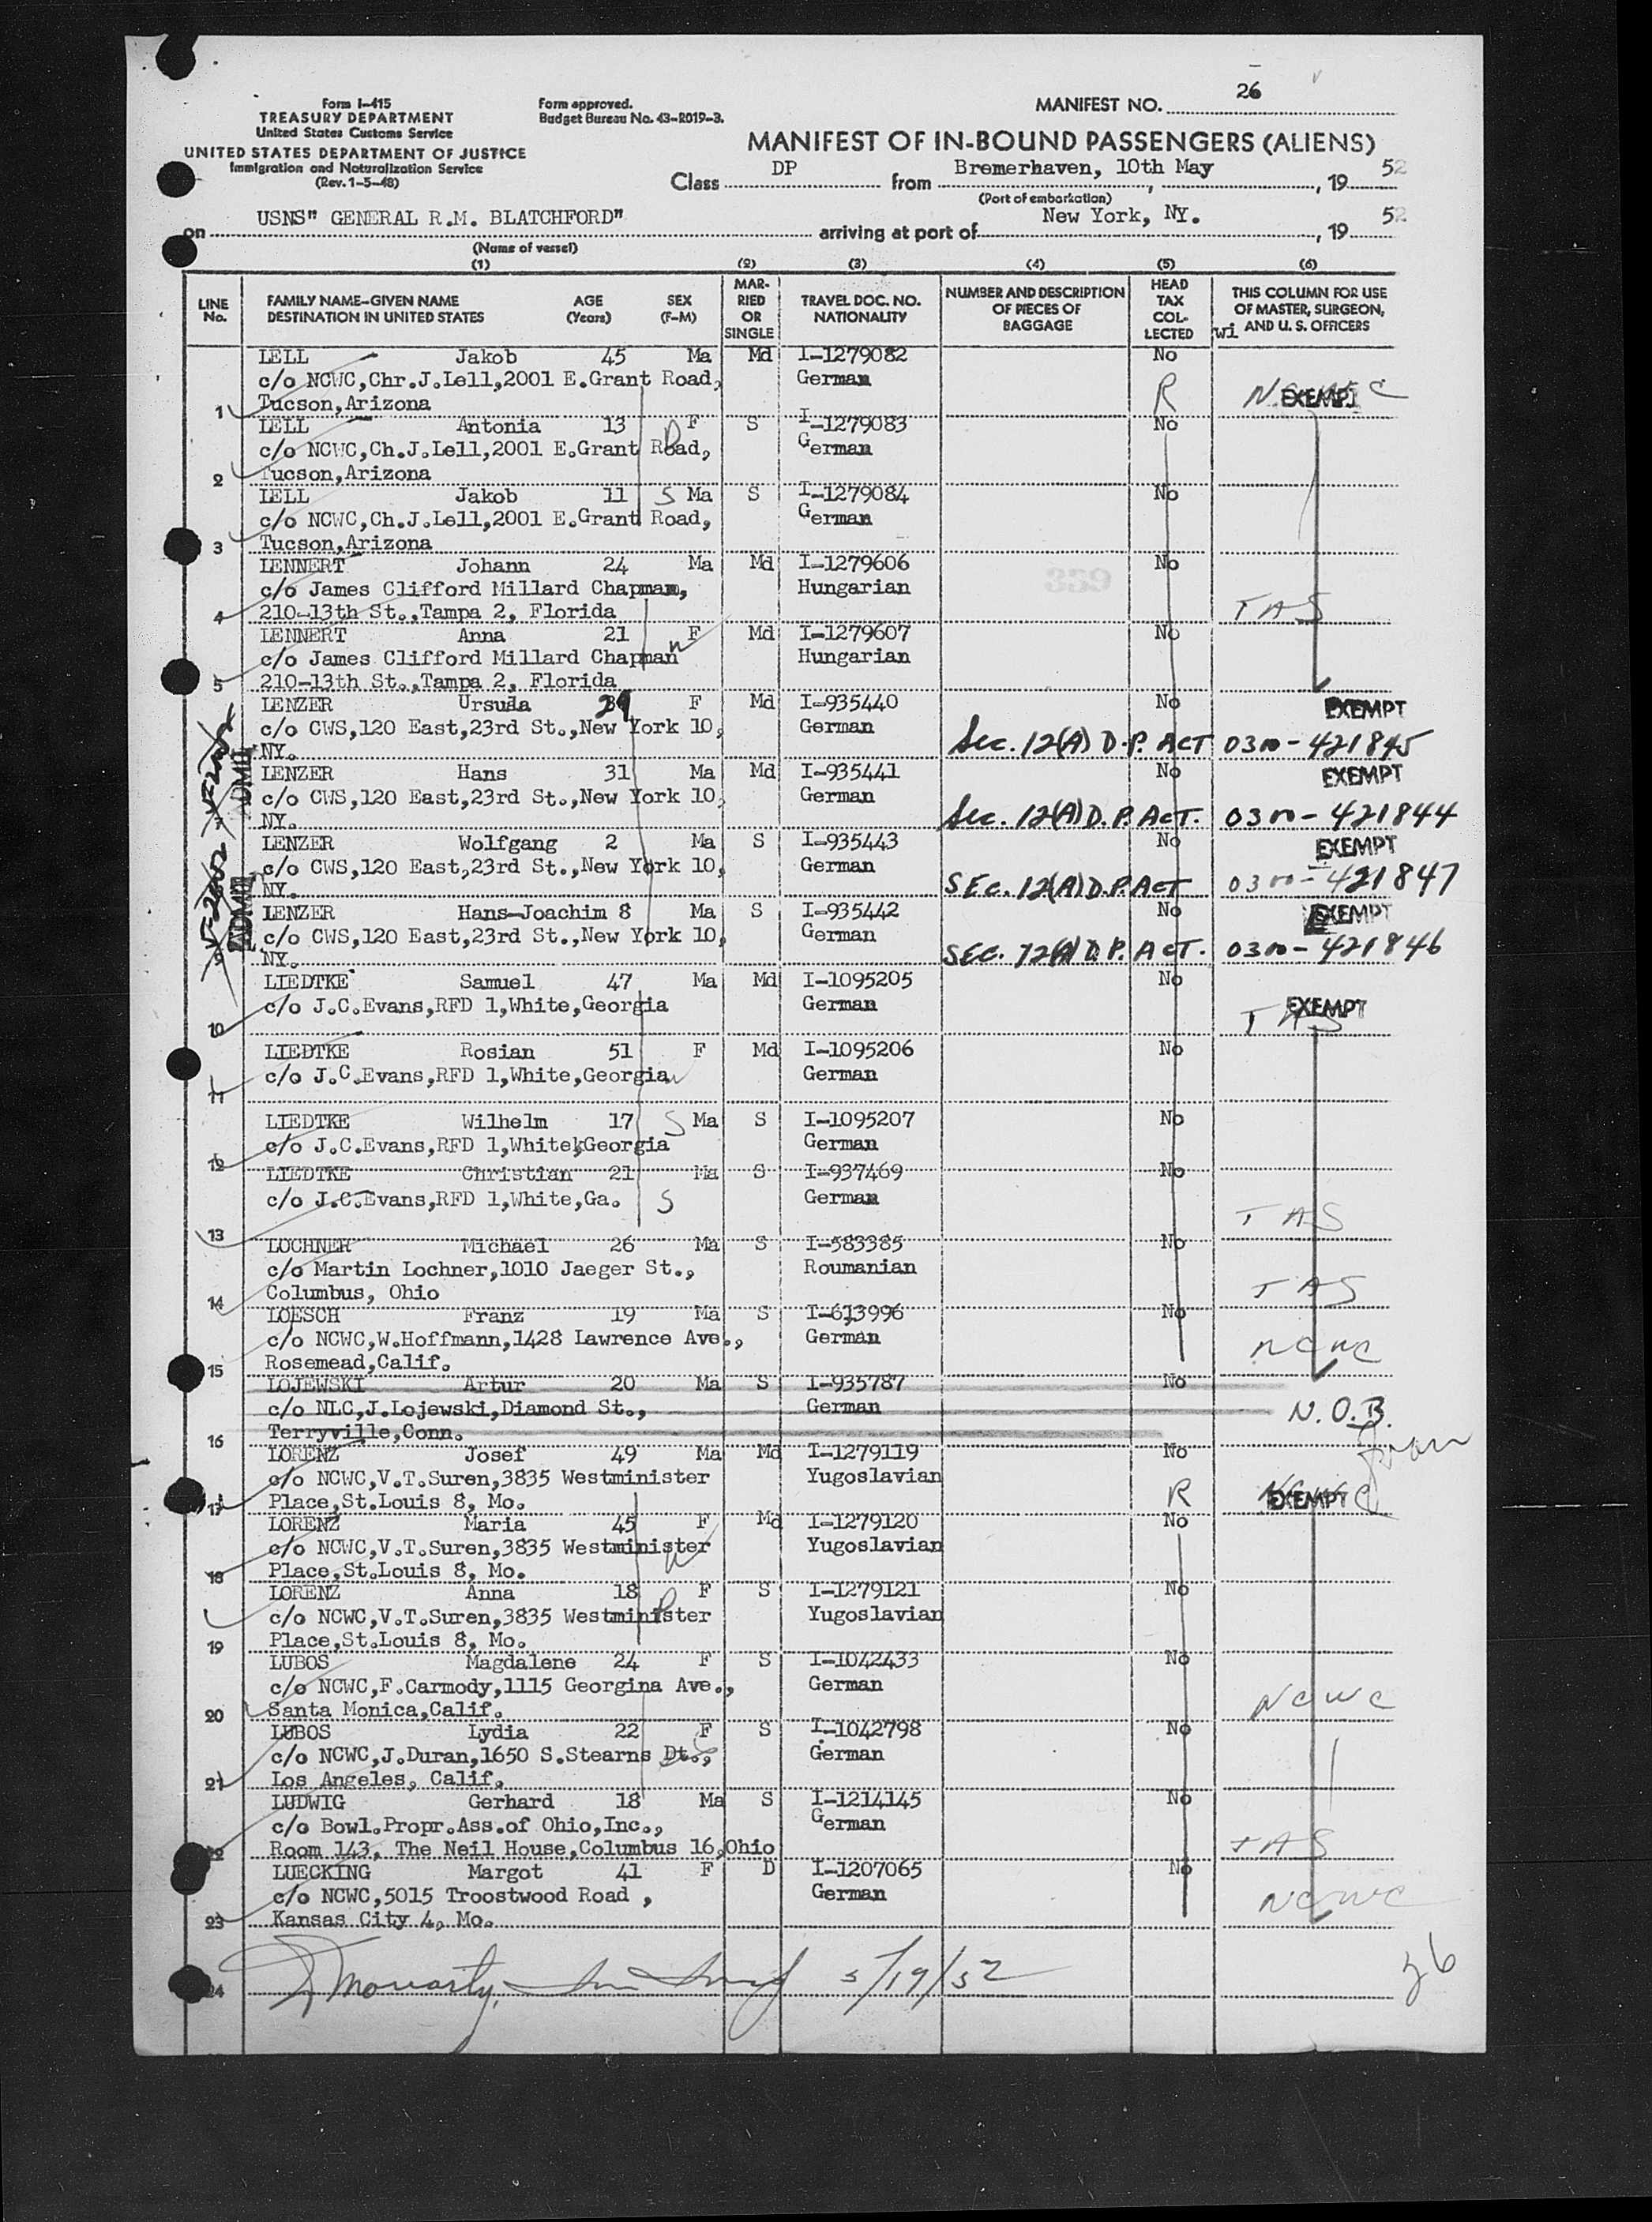 26
Form I-415
TREASURY DEPARTMENT
United States Customs Service
UNITED STATES DEPARTMENT OF JUSTICE
Immigration and Naturalization Service
(Rev. 1-5-48)
Form approved.
Budget Bureau No. 43-R019-3.
MANIFEST NO.
MANIFEST OF IN-BOUND PASSENGERS (ALIENS)
Class DP from Bremerhaven, 10th May, 19 52
(Port of embarkation)
on USNS" GENERAL R.M. BLATCHFORD" arriving at port of New York, NY., 19 52
(Name of vessel)
(1) (2) (3) (4) (5) (6)
LINE No. FAMILY NAME-GIVEN NAME DESTINATION IN UNITED STATES AGE (Years) SEX (F-M) MARRIED OR SINGLE TRAVEL DOC. NO. NATIONALITY NUMBER AND DESCRIPTION OF PIECES OF BAGGAGE HEAD TAX COLLECTED THIS COLUMN FOR USE OF MASTER, SURGEON, AND U. S. OFFICERS
wi
LELL Jakob 45 Ma Md I-1279082 No
c/o NCWC,Chr.J.Lell,2001 E.Grant Road, German R NCWC EXEMPT
1 Tucson,Arizona
LELL Antonia 13 F S I-1279083 No
c/o NCWC,Ch.J.Lell,2001 E.Grant Road, German
2 Tucson,Arizona
LELL Jakob 11 S Ma S I-1279084 No
c/o NCWC,Ch.J.Lell,2001 E.Grant Road, German
3 Tucson,Arizona
LENNERT Johann 24 Ma Md I-1279606 No
c/o James Clifford Millard Chapman, Hungarian
4 210-13th St.,Tampa 2, Florida TAS
LENNERT Anna 21 F Md I-1279607 No
c/o James Clifford Millard Chapman W Hungarian
5 210-13th St.,Tampa 2, Florida
LENZER Ursula 29 F Md I-935440 No EXEMPT
c/o CWS,120 East,23rd St.,New York 10, German
NY. Sec. 12(A) D.P. ACT 0300-421845
LENZER Hans 31 Ma Md I-935441 No EXEMPT
c/o CWS,120 East,23rd St.,New York 10, German
7 NY. Sec. 12(A) D.P. ACT. 0300-421844
ADMD
LENZER Wolfgang 2 Ma S I-935443 No EXEMPT
c/o CWS,120 East,23rd St.,New York 10, German
NY. SEC. 12(A) D.P. ACT 0300-421847
ADMD
LENZER Hans-Joachim 8 Ma S I-935442 No EXEMPT
c/o CWS,120 East,23rd St.,New York 10, German
9 NY. SEC. 12(A) D.P. ACT. 0300-421846
LIEDTKE Samuel 47 Ma Md I-1095205 No
c/o J.C.Evans,RFD 1,White,Georgia German EXEMPT
10 TAS
LIEDTKE Rosian 51 F Md I-1095206 No
c/o J.C.Evans,RFD 1,White,Georgia W German
11
LIEDTKE Wilhelm 17 S Ma S I-1095207 No
12 c/o J.C.Evans,RFD 1,White,Georgia German
LIEDTKE Christian 21 Ma S I-937469 No
c/o J.C.Evans,RFD 1,White,Ga. S German
13 TAS
LOCHNER Michael 26 Ma S I-583385 No
c/o Martin Lochner,1010 Jaeger St., Roumanian
14 Columbus, Ohio TAS
LOESCH Franz 19 Ma S I-613996 No
c/o NCWC,W.Hoffmann,1428 Lawrence Ave., German
15 Rosemead,Calif. NCWC
LOJEWSKI Artur 20 Ma S I-935787 No
c/o NLC,J.Lojewski,Diamond St., German N.O.B.
16 Terryville,Conn.
LORENZ Josef 49 Ma Md I-1279119 No
c/o NCWC,V.T.Suren,3835 Westminister Yugoslavian
17 Place,St.Louis 8, Mo. R NCWC EXEMPT
LORENZ Maria 45 F Md I-1279120 No
c/o NCWC,V.T.Suren,3835 Westminister Yugoslavian
18 Place,St.Louis 8, Mo. W
LORENZ Anna 18 F S I-1279121 No
c/o NCWC,V.T.Suren,3835 Westminister Yugoslavian
19 Place,St.Louis 8, Mo.
LUBOS Magdalene 24 F S I-1042433 No
c/o NCWC,F.Carmody,1115 Georgina Ave., German
20 Santa Monica,Calif. NCWC
LUBOS Lydia 22 F S I-1042798 No
c/o NCWC,J.Duran,1650 S.Stearns Dt., German
21 Los Angeles, Calif.
LUDWIG Gerhard 18 Ma S I-1214145 No
c/o Bowl.Propr.Ass.of Ohio,Inc., German
22 Room 143, The Neil House,Columbus 16,Ohio TAS
LUECKING Margot 41 F D I-1207065 No
c/o NCWC,5015 Troostwood Road , German
23 Kansas City 4, Mo. NCWC
24 Moriarty, 5/19/52
36